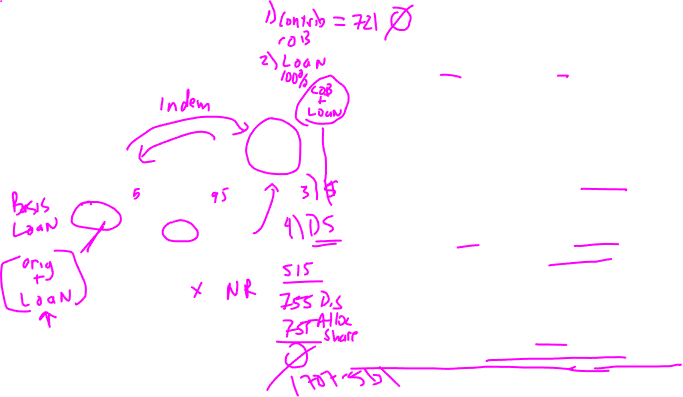 1) Contrib = 721 Ø
COB
2) LOAN
100%
COB
+
LOAN
Indem
5 95
BASIS
LOAN
3)
4) DS
orig
+
LOAN
X NR
515
755 Dis
755 Alloc
Share
Ø
1707-5(b)